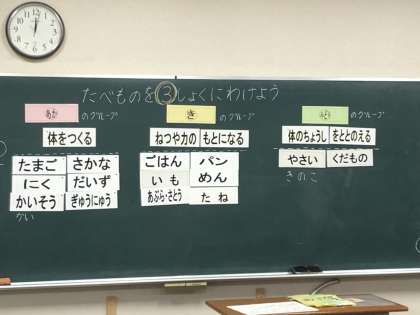 たべものを③しょくにわけよう
あか のグループ
体をつくる
たまご さかな
にく だいず
かいそう ぎゅうにゅう
かい
き のグループ
ねつや力の もとになる
ごはん パン
いも めん
あぶら・さとう たね
みどり のグループ
体のちょうし をととのえる
やさい くだもの
きのこ